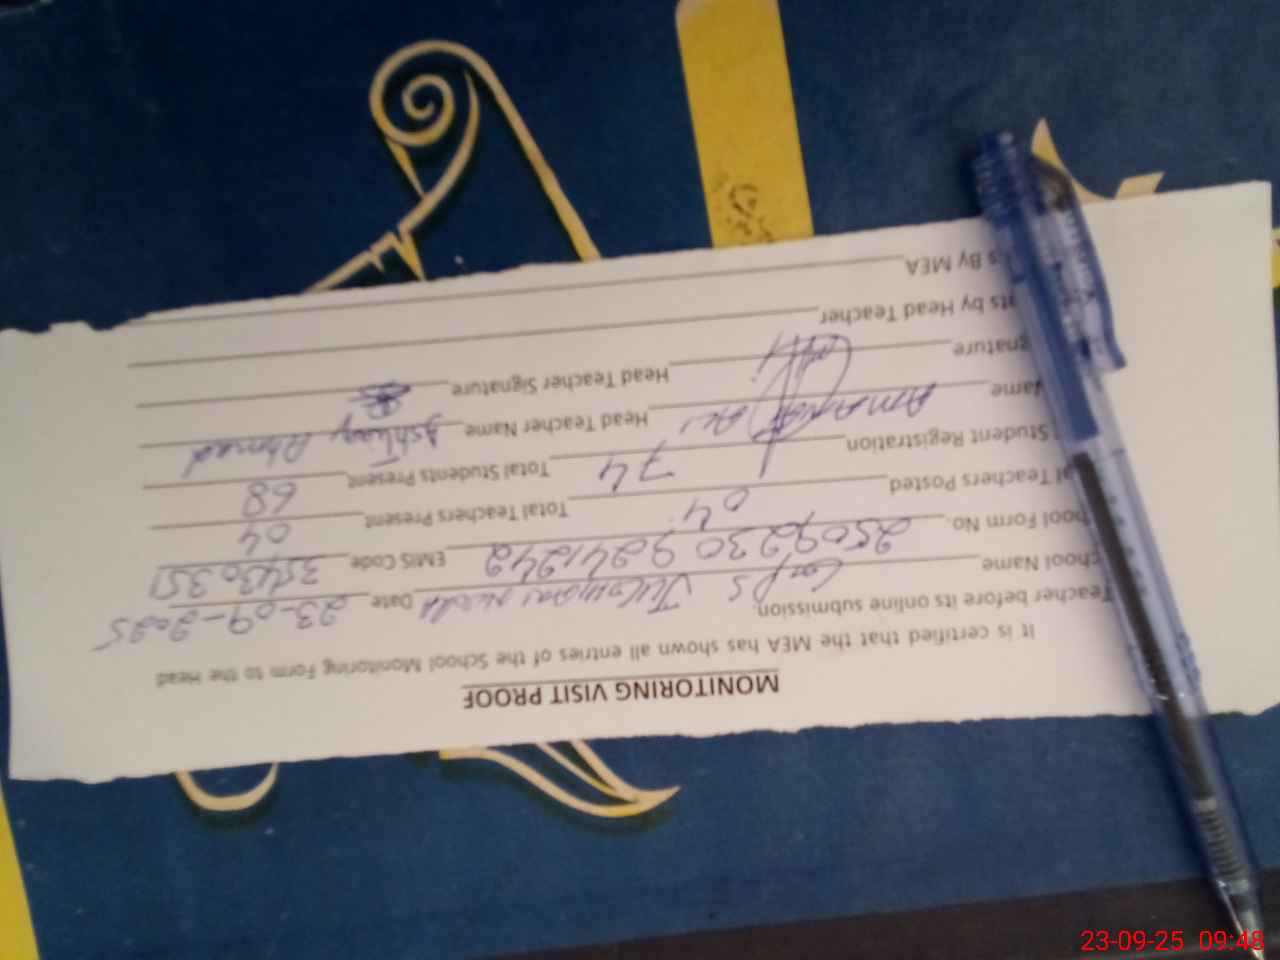 MONITORING VISIT PROOF
It is certified that the MEA has shown all entries of the School Monitoring Form to the Head
Teacher before its online submission.
chool Name Date 23-09-2025
hool Form No. 2509230 9241242 EMIS Code
al Teachers Posted 04 Total Teachers Present 04
Student Registration 74 Total Students Present 68
Name Head Teacher Name Ahmed
gnature Head Teacher Signature
ts by Head Teacher
s By MEA
23-09-25 09:48